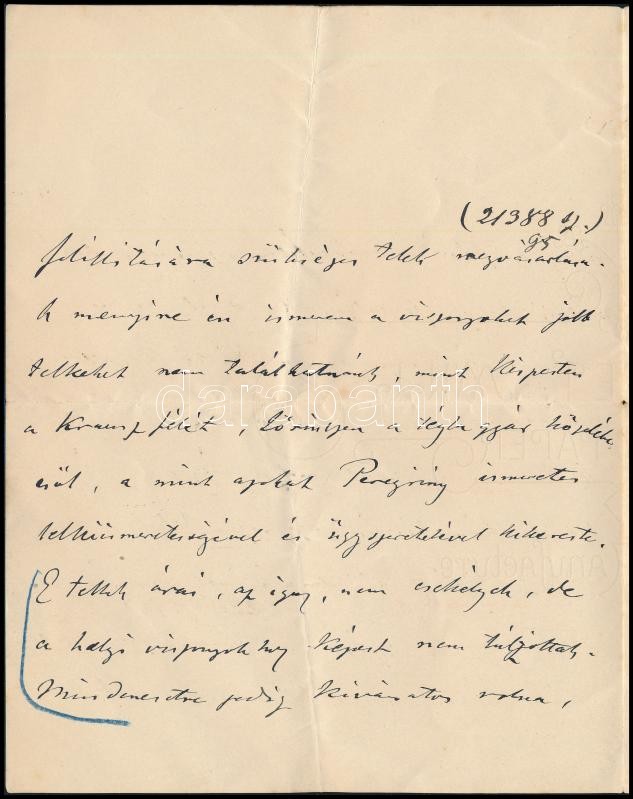 (21388 sz.)
95
felállítására szükséges telek megvásárlása.
A mennyire én ismerem a viszonyokat jobb
telkeket nem találhatnánk, mint Kispesten
a Krausz félét, Lőrinczen a téglagyár közelé
ből, a mint azokat Peregriny ismeretes
lelkiismeretességével és ügyszeretetével kikereste.
E telkek árai, az igaz, nem csekélyek, de
a helyi viszonyokhoz képest nem túlzottak.
Mindenesetre pedig kívánatos volna,
darabanth